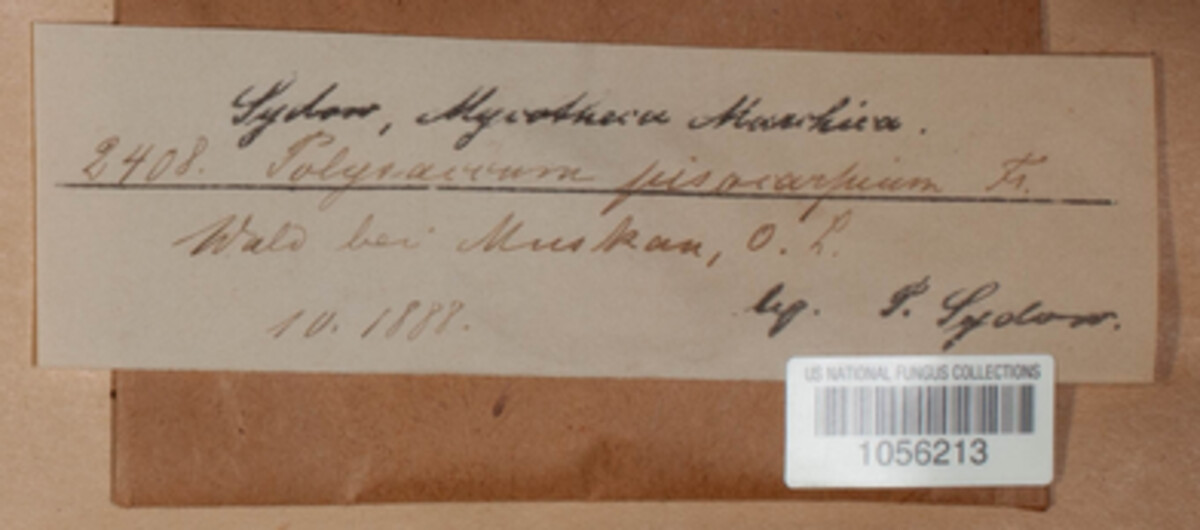 Sydow, Mycotheca Marchica.
2408. Polysaccum pisocarpium Fr.
Wald bei Muskau, O. L.
10. 1888.
leg. P. Sydow.
US NATIONAL FUNGUS COLLECTIONS
1056213